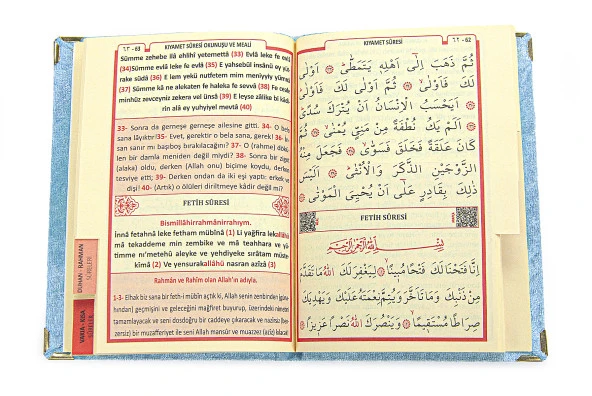 ٦٣ - 63 KIYAMET SÛRESİ OKUNUŞU VE MEALİ
Sümme zehebe ilâ ehlihî yetemettâ (33) Evlâ leke fe evlâ
(34) Sümme evlâ leke fe evlâ (35) E yahsebül insânü ey yüt-
rake südâ (36) E lem yekü nutfetem mim meniyyiy yümnâ
(37) Sümme kâ ne alekaten fe haleka fe sevvâ (38) Fe ceale
minhüz zevceyniz zekera vel ünsâ (39) E leyse zâlike bi kâdi-
rin alâ ey yuhyiyel mevtâ (40)
33- Sonra da gerneşe gerneşe ailesine gitti. 34- O bela
sana lâyıktır! 35- Evet, gerektir o bela sana, gerek! 36- İn-
san sanır mı başıboş bırakılacağını? 37- O (rahme) dökü-
len bir damla meniden değil miydi? 38- Sonra bir
(alaka) oldu, derken (Allah onu) biçime koydu, derken
tesviye etti; 39- Derken ondan da iki eşi yaptı: erkek ve
dişi! 40- (Artık) o ölüleri diriltmeye kâdir değil mi?
FETİH SÛRESİ
Bismillâhirrahmânirrahıym.
İnnâ fetahnâ leke fetham mübînâ (1) Li yağfira lekallâhü
mâ tekaddeme min zembike ve mâ teahhara ve yü-
timme nı'metehû aleyke ve yehdiyeke sırâtam müste-
kîmâ (2) Ve yensurakallâhü nasran azîzâ (3)
Rahmân ve Rahîm olan Allah'ın adıyla.
1-3- Elhak biz sana bir feth-i mübîn açtık ki, Allah senin zenbinden (güna-
hından) geçmişini ve geleceğini mağfiret buyurup, üzerindeki nimetini
tamamlayacak ve seni dosdoğru bir caddeye çıkaracak ve nazirsiz (ben-
zersiz) bir muzafferiyetle seni Allah mansûr ve muazzez (aziz) kılacak
DUHAN - RAHMAN
SÛRELERİ
VAKIA - KISA
SÛRELER
KIYAMET SÛRESİ ٦٢ - 62
ثُمَّ ذَهَبَ اِلٰٓى اَهْلِه۪ يَتَمَطّٰىۜ ﴿٣٣﴾ اَوْلٰى
لَكَ فَاَوْلٰىۙ ﴿٣٤﴾ ثُمَّ اَوْلٰى لَكَ فَاَوْلٰىۜ
﴿٣٥﴾ اَيَحْسَبُ الْاِنْسَانُ اَنْ يُتْرَكَ سُدًىۜ
﴿٣٦﴾ اَلَمْ يَكُ نُطْفَةً مِنْ مَنِيٍّ يُمْنٰىۙ ﴿٣٧﴾ ثُمَّ
كَانَ عَلَقَةً فَخَلَقَ فَسَوّٰىۙ ﴿٣٨﴾ فَجَعَلَ مِنْهُ
الزَّوْجَيْنِ الذَّكَرَ وَالْاُنْثٰىۜ ﴿٣٩﴾ اَلَيْسَ
ذٰلِكَ بِقَادِرٍ عَلٰٓى اَنْ يُحْيِيَ الْمَوْتٰى ﴿٤٠﴾
FETİH SÛRESİ
بِسْمِ اللّٰهِ الرَّحْمٰنِ الرَّح۪يمِ
اِنَّا فَتَحْنَا لَكَ فَتْحًا مُب۪ينًاۙ ﴿١﴾ لِيَغْفِرَ لَكَ اللّٰهُ مَا تَقَدَّمَ
مِنْ ذَنْبِكَ وَمَا تَاَخَّرَ وَيُتِمَّ نِعْمَتَهُ عَلَيْكَ وَيَهْدِيَكَ
صِرَاطًا مُسْتَق۪يمًاۙ ﴿٢﴾ وَيَنْصُرَكَ اللّٰهُ نَصْرًا عَز۪يزًا ﴿٣﴾